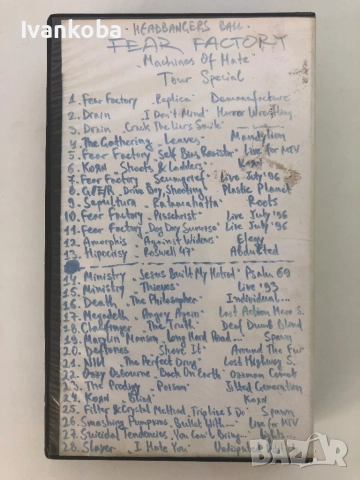 HEADBANGERS BALL
FEAR FACTORY
"Machines Of Hate"
Tour Special
1. Fear Factory "Replica" Demanufacture
2. Drain "I Don't Mind" Horror Wrestling
3. Drain "Crack The Liars Smile"
4. The Gathering "Leaves" Mandylion
5. Fear Factory "Self Bias Resistor" Live for MTV
6. KoЯn "Shoots & Ladders" KoЯn
7. Fear Factory "Scumgrief" Live July '96
8. G/Z/R "Drive Boy, Shooting" Plastic Planet
9. Sepultura "Ratamahatta" Roots
10. Fear Factory "Pisschrist" Live July '96
11. Fear Factory "Dog Day Sunrise" Live July '96
12. Amorphis "Against Widows" Elegy
13. Hipocrisy "Roswell 47" Abducted
14. Ministry "Jesus Built My Hotrod" Psalm 69
15. Ministry "Thieves" Live '93
16. Death "The Philosopher" Individual...
17. Megadeth "Angry Again" Last Action Hero S.
18. Clawfinger "The Truth" Deaf Dumb Blind
19. Marilyn Manson "Long Hard Road..." Spawn
20. Deftones "Shove It" Around The Fur
21. NIN "The Perfect Drug" Lost Highway S.
22. Ozzy Osbourne "Back On Earth" Ozzman Comet
23. The Prodigy "Poison" Jilted Generation
24. KoЯn "Blind" KoЯn
25. Filter & Crystal Method "Trip Like I Do" Spawn
26. Smashing Pumpkins "Bullet With..." Live for MTV
27. Suicidal Tendencies "You Can't Bring... Lights...
28. Slayer "I Hate You" Undisputed
BAZAR
bg